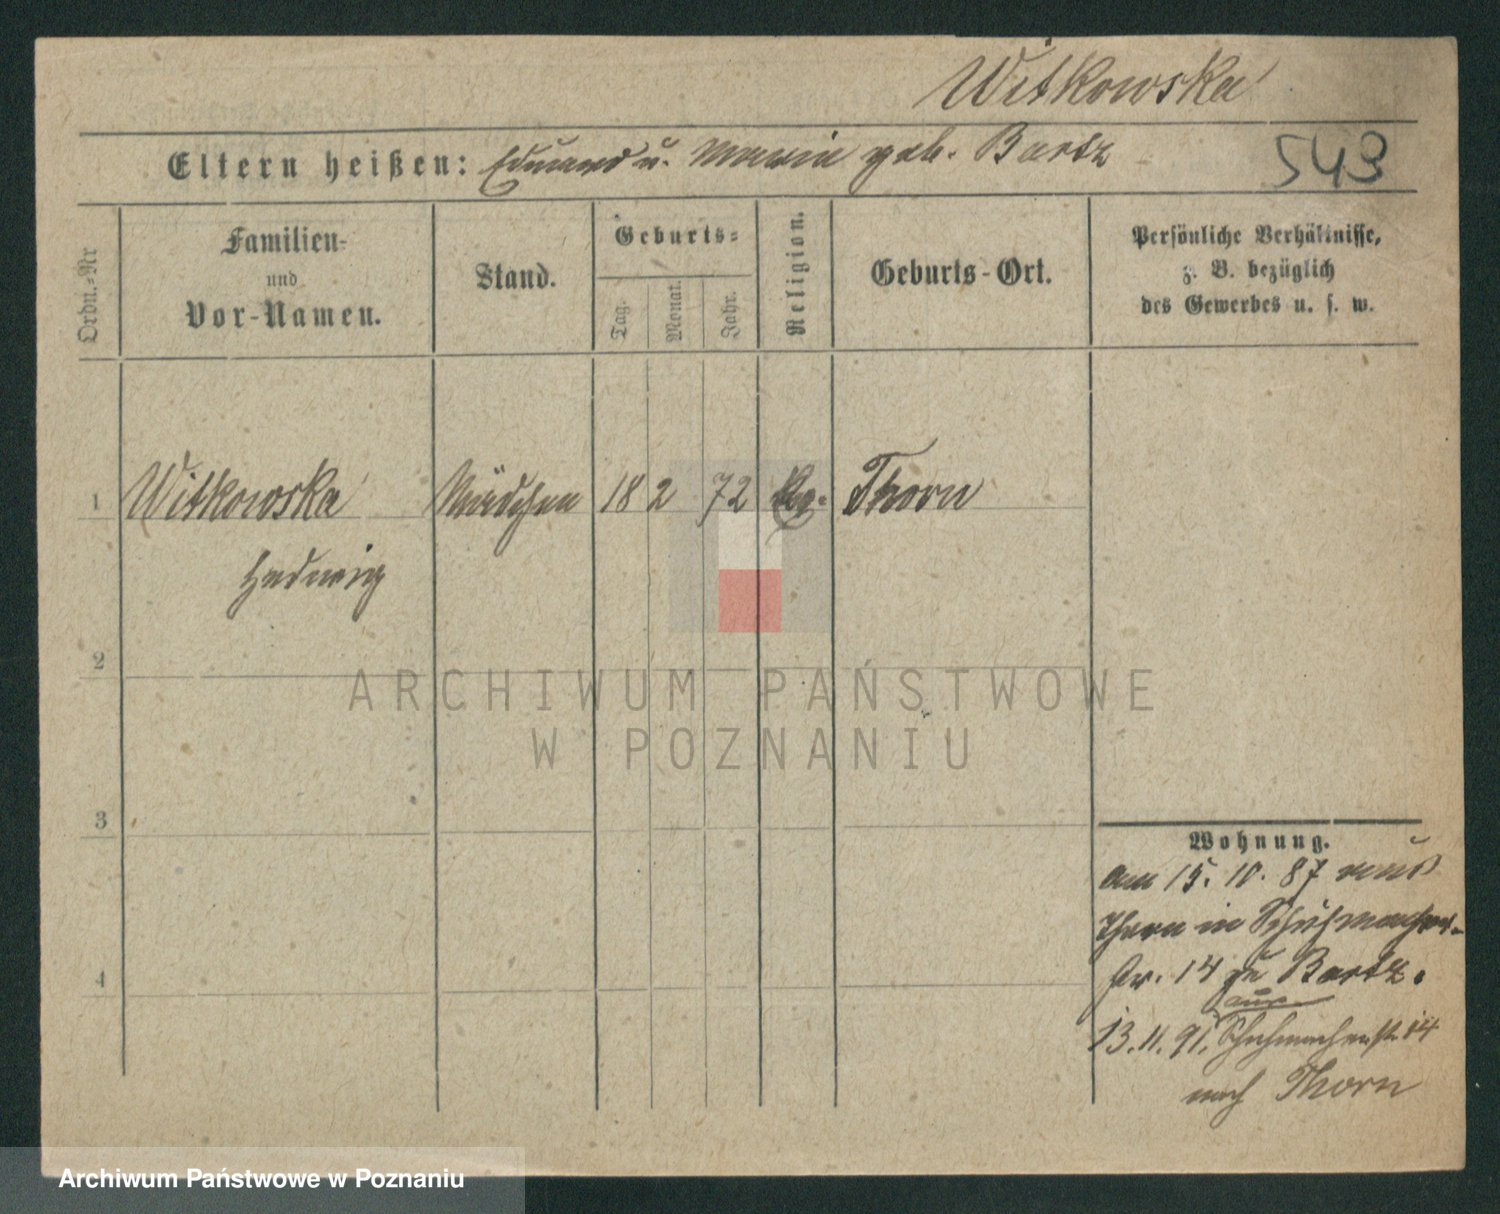 Witkowska
Eltern heißen: Eduard u. Maria geb. Bartz
543
Ordn.-Nr
Familien-
und
Vor-Namen.
Stand.
Geburts-
Tag.
Monat.
Jahr.
Religion.
Geburts-Ort.
Persönliche Verhältnisse,
z. B. bezüglich
des Gewerbes u. s. w.
1 Witkowska Mädchen 18 2 72 Thorn
Hedwig
2
3
4
Wohnung.
am 15. 10. 87 aus
Thorn in Schuhmacher-
str. 14 zu Bartz.
aus
13. 11. 91. Schuhmacherstr. 14
nach Thorn
ARCHIWUM PAŃSTWOWE
W POZNANIU
Archiwum Państwowe w Poznaniu